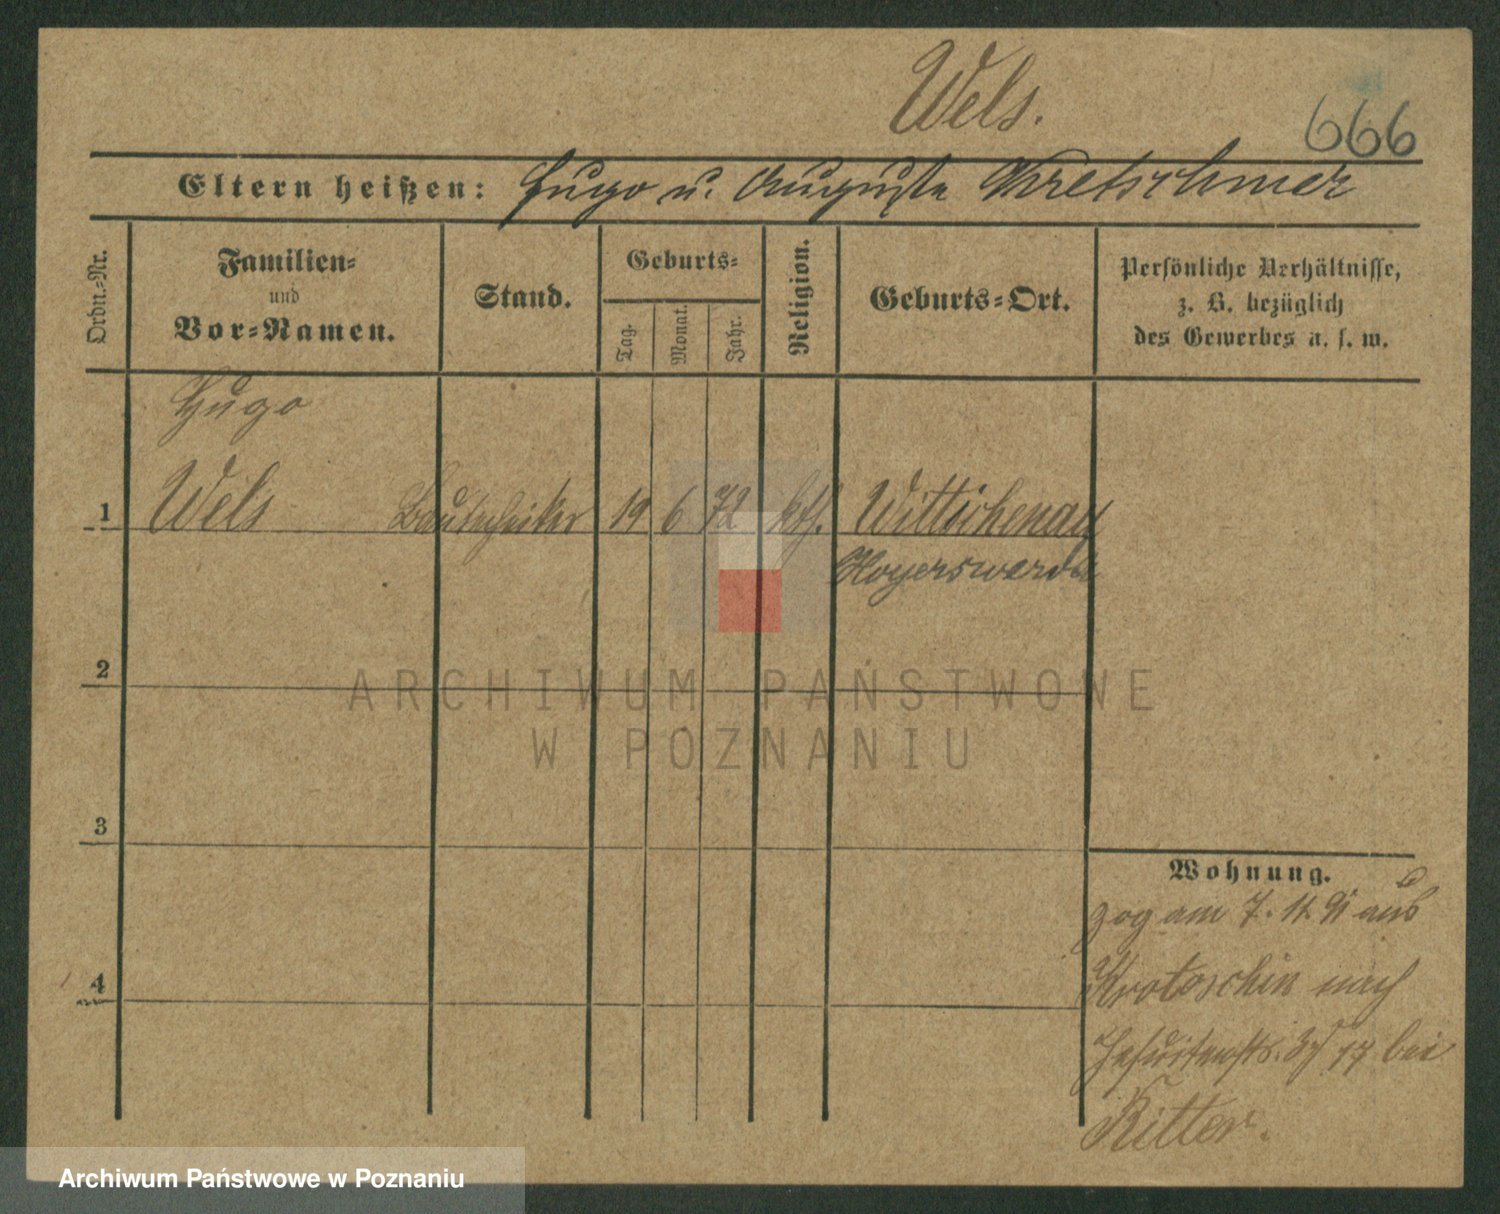 Wels.
666
Eltern heißen: Hugo u. Auguste Kretschmer
Ordn.-Nr.
Familien-
und
Vor-Namen.
Stand.
Geburts-
Tag.
Monat.
Jahr.
Religion.
Geburts-Ort.
Persönliche Verhältnisse,
z. B. bezüglich
des Gewerbes u. s. w.
Hugo
1 Wels Bautechniker 19 6 72 kth. Wittichenau
Hoyerswerda
2
ARCHIWUM PAŃSTWOWE
W POZNANIU
3
Wohnung.
zog am 7. 11. 91 aus
4
Krotoschin nach
Jesuitenstr. 17 bei
Ritter.
Archiwum Państwowe w Poznaniu